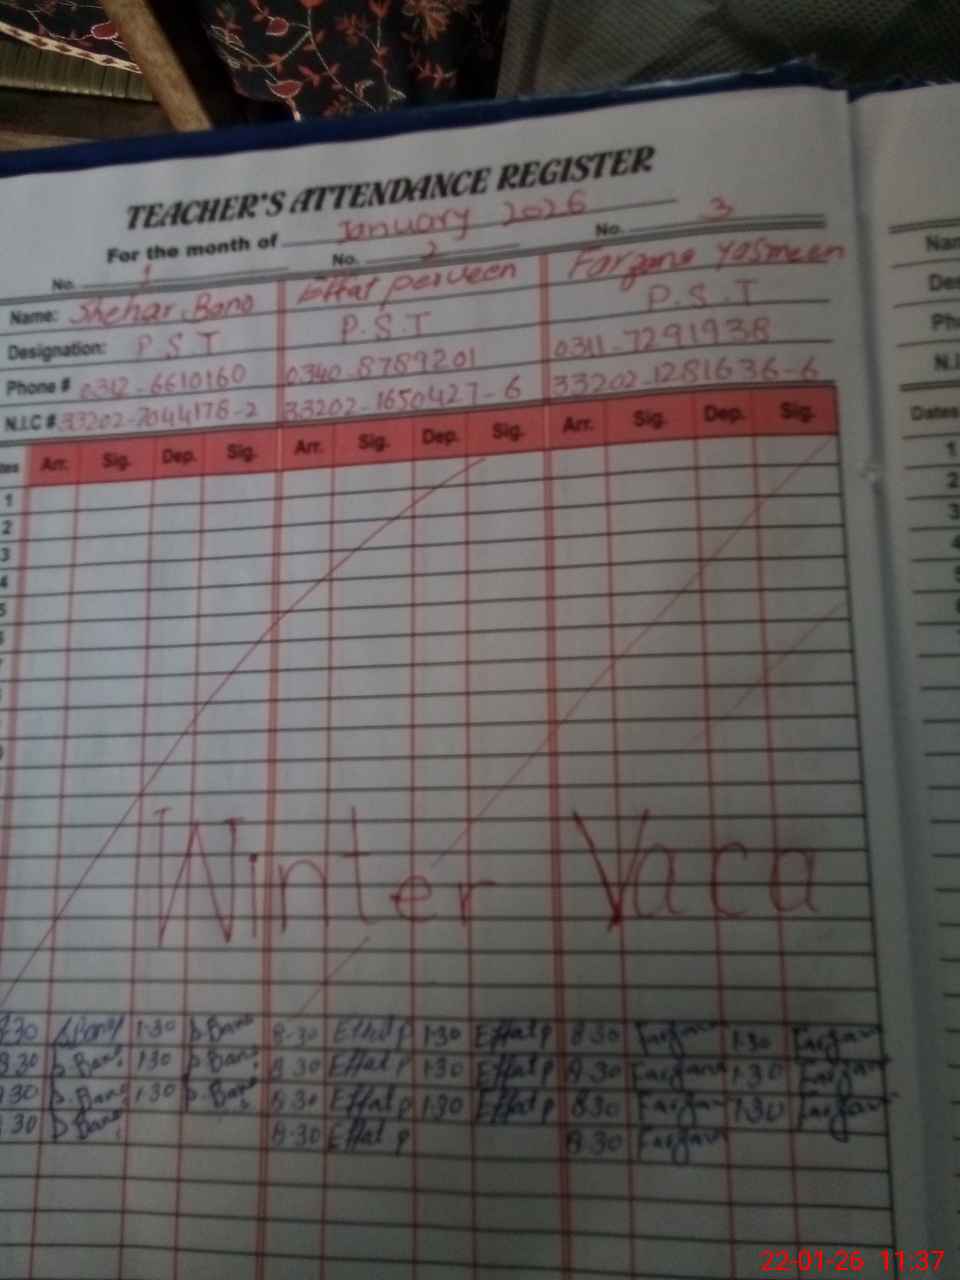 TEACHER'S ATTENDANCE REGISTER
For the month of January 2026
No. 1 No. 2 No. 3
Name: Shehar Bano Effat perveen Farzana Yasmeen
Designation: P S T P.S.T P.S.T
Phone # 0342-6610160 0340-8789201 0341-7291938
N.I.C # 33202-7044178-2 33202-1650427-6 33202-1281636-6
tes Arr. Sig. Dep. Sig. Arr. Sig. Dep. Sig. Arr. Sig. Dep. Sig.
1
2
3
4
5
Winter Vaca
8.30 S.Bano 1.30 S.Bano 8.30 Effat p 1.30 Effat p 8.30 Farzan 1.30 Farzan
8.30 S.Bano 1.30 S.Bano 8.30 Effat p 1.30 Effat p 8.30 Farzana 1.30 Farzan
8.30 S.Bano 1.30 S.Bano 8.30 Effat p 1.30 Effat p 8.30 Farzan 1.30 Farzan
8.30 S.Bano 8.30 Effat p 8.30 Farzan
Nam
Des
Pho
N.I.
Dates
1
2
3
4
22-01-26 11:37